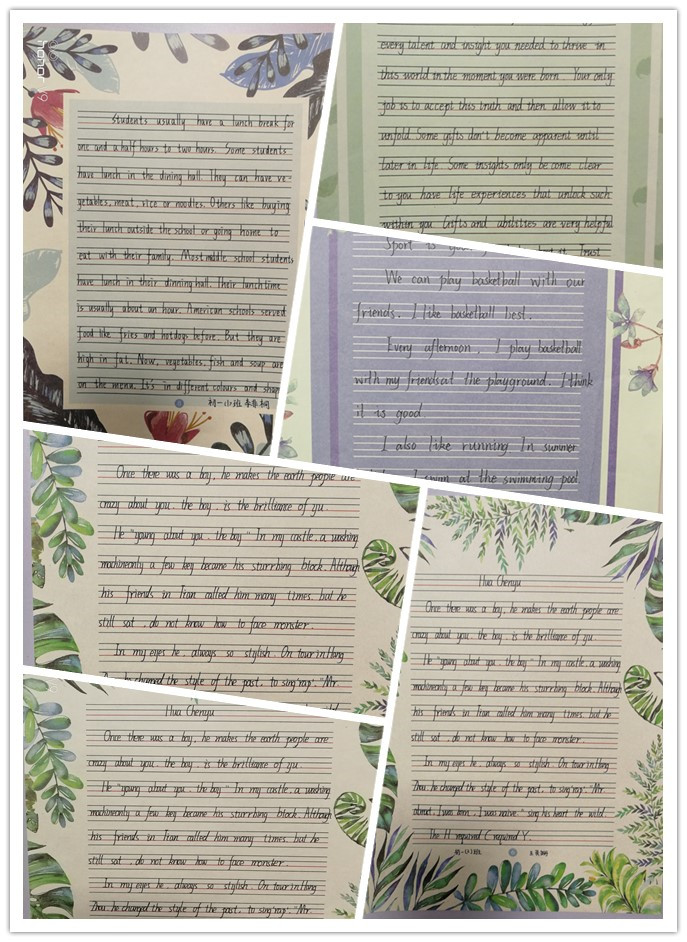 Students usually have a lunch break for
one and a half hours to two hours. Some students
have lunch in the dining hall. They can have ve-
getables, meat, rice or noodles. Others like buying
their lunch outside the school or going home to
eat with their family. Most middle school students
have lunch in their dinning hall. Their lunch time
is usually about an hour. American schools served
food like fries and hotdogs before. But they are
high in fat. Now, vegetables, fish and soup are
on the menu. It's in different colours and shap
初一
every talent and insight you needed to thrive in
this world in the moment you were born. Your only
job is to accept this truth and then allow it to
unfold. Some gifts don't become apparent until
later in life. Some insights only become clear
to you have life experiences that unlock such
within you. Gifts and abilities are very helpful
Sport is Trust
We can play basketball with our
friends. I like basketball best.
Every afternoon, I play basketball
with my friends at the playground. I think
it is good.
I also like running. In summer
I swim at the swimming pool
Once there was a boy, he makes the earth people are
crazy about you. the boy. is the brilliance of yu.
He "young about you. the boy" In my castle. a washing
machineonly a few key became his sturrbing block. Although
his friends in Tian called him many times. but he
still sat. do not know how to face monster.
In my eyes he. always so stylish. On tour in Hang
he changed the style of the past. to sing "ray". "Mr.
Hua Chenyu
Once there was a boy, he makes the earth people are
crazy about you. the boy. is the brilliance of yu.
He "young about you. the boy" In my castle. a washing
machineonly a few key became his sturrbing block. Although
his friends in Tian called him many times. but he
still sat. do not know how to face monster.
In my eyes he. always so stylish. On tour in Hang
Zhou. he changed the style of the past. to sing "ray". "Mr.
Hua Chenyu
Once there was a boy, he makes the earth people are
crazy about you. the boy. is the brilliance of yu.
He "young about you. the boy" In my castle. a washing
machineonly a few key became his sturrbing block. Although
his friends in Tian called him many times. but he
still sat. do not know how to face monster.
In my eyes he. always so stylish. On tour in Hang
Zhou. he changed the style of the past. to sing "ray". "Mr.
about. I was born. I was naive." sing his heart the wild.
The H required C required Y.